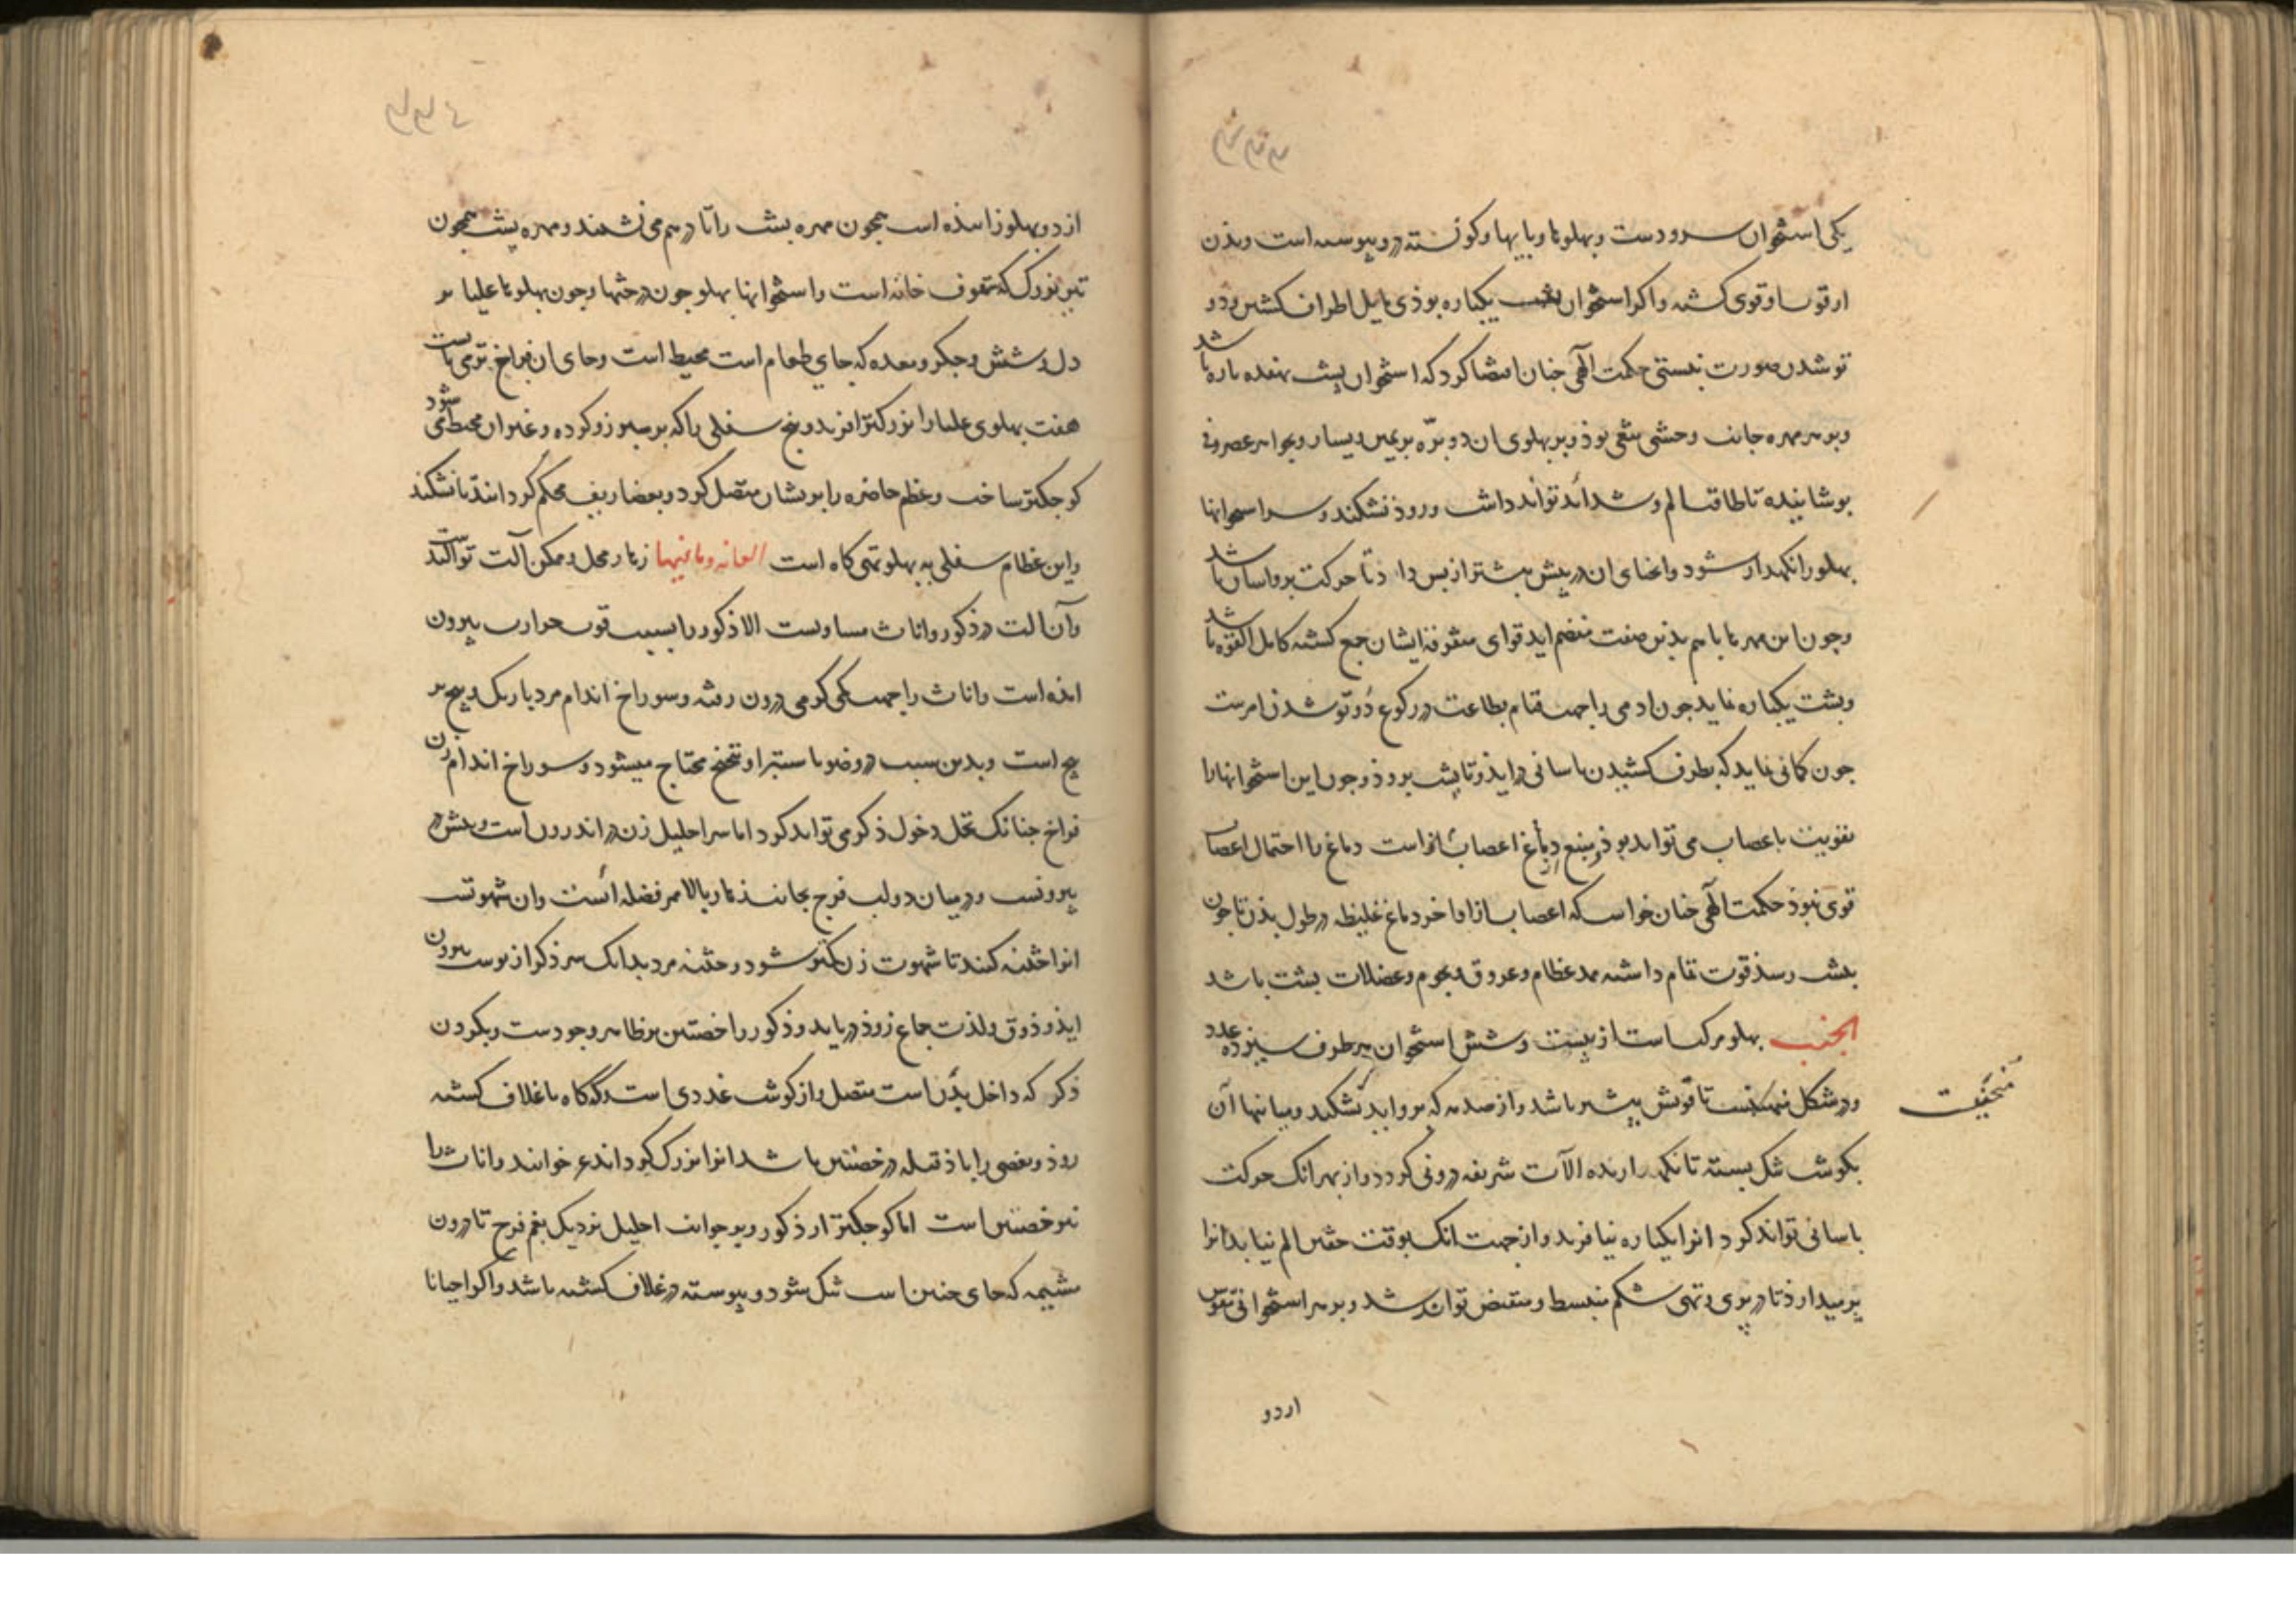 یکی استخوان سر و دست و پهلوها و پایها و کونسته در وپیوسته است و بذن
از قوت او قوی کشته و اکر استخوان پشت یکباره بوذی مایل اطراف کشتن و دو
تو شدن صورت نبستی حکمت الهی جنان امضا کرد که استخوان پشت هفده باره باشد
و بر هر مهره جانب وحشی
بوشانیده تا طاقت الم و شدائد تواند داشت و زوذ نشکند و سر استخوانها
پهلو را نکهدار شود و انحنای ان در پیش بیشتر از پس داد تا حرکت برو اسان باشد
وجون این مهرها باهم بذین صفت منضم اید قوای متفرقه ایشان جمع کشته کامل القوه باشد
و بشت یکباره نماید جون ادمی را جهت قیام بطاعت در رکوع دو تو شدن امرست
جون کمانی نماید که بطرف کشیدن باسانی در ایذ و تا پشت بروذ و جون این استخوانها را
تقویت باعصاب می تواند بوذ و منبع دماغ اعصاب است دماغ را احتمال اعصاب
قوی نبوذ حکمت الهی جنان خواست که اعصاب از اواخر دماغ غلیظه در طول بذن تا جون
بپشت رسذ قوت تمام داشته ممد عظام و عروق و لحوم و عضلات بشت باشد
الجنب پهلو مرکب است از بیست و شش استخوان هر طرف سیزده عدد
و در شکل تا قوتش بیشتر باشد و از صدمه که برو اید نشکند و میانها آن
منحنیست
بکوشت تنک بسته تا نکهدارنده الآت شریفه درونی کردد و از بهر انک حرکت
باسانی تواند کرد انرا یکباره نیافرید و از جهت انک بوقت حقن الم نیابد انرا
بر میدارذ تا در بری و تهی شکم منبسط و منقبض تواند شد و بر هر استخوانی تقوس
از دو
از دو پهلو زاینده است همجون مهره بشت را تا در هم می نشیند و مهره پشت همجون
تیر بزرک که سقوف خانه است و استخوانها پهلو جون درختها و جون پهلوها علیا بر
دل و شش و جکر و معده که جای طعام است محیط است و جای ان فراخ تر می بایست
هفت پهلوی علیا را بزرکتر افرید و پنج سفلی را که بر سپرز و کرده و غیر ان محیط می شود
کوجکتر ساخت و عظم خاصره را بریشان متصل کرد و بغضاریف محکم کردانید تا نشکند
و این عظام سفلی به پهلو تهی کاه است العانه و ما فیها زهار محل و ممکن آلت توالدست
و آن الت در ذکور و اناث مساویست الا ذکور را بسبب قوت حرارت بیرون
امذه است و اناث را جهت کمی کرمی درون رفته و سوراخ اندام مرد باریک و پیچ بر
پیچ است و بدین سبب در وضو با ستبرا و تنحنح محتاج میشود و سوراخ اندام زن
فراخ جنانک تحمل دخول ذکر می تواند کرد اما سر احلیل زن در اندرون است و بیخش در
بیرونست و در میان دو لب فرج بجانب زهار بالا ممر فضله است و ان شهوتست
انرا ختنه کنند تا شهوت زن کمتر شود و ختنه مرد بدانک سر ذکر از بوست بیرون
ایذ و ذوق و لذت جماع زوذ در یابد و ذکور را خصتین بر ظاهر وجودست و بکردن
ذکر که داخل بذن است متصل و از کوشت غددی است و کاه کاه با غلاف کشته
روذ و بعضی را باذ قیله در خصتین باشد انرا بزرک کرداند خوانند و اناث را
نیز خصتین است اما کوجکتر از ذکور و بر جوانب احلیل نزدیک بفم فرج تا درون
مشیمه که جای جنین است تنک شود و پیوسته در غلاف کشته باشد و اکر احیانا